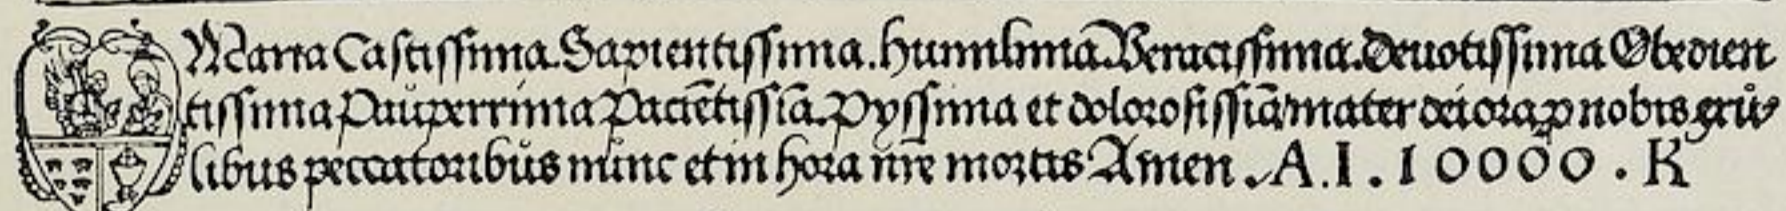 Maria Castissima. Sapientissima. humilima. Veracissima. Deuotissima Obedien
tissima Pauperrima Paciētissīa. Pyssima et dolorosissiā mater dei ora p nobis
libus peccatoribus nunc et in hora nr̄e mortis Amen. A.I.10000.K